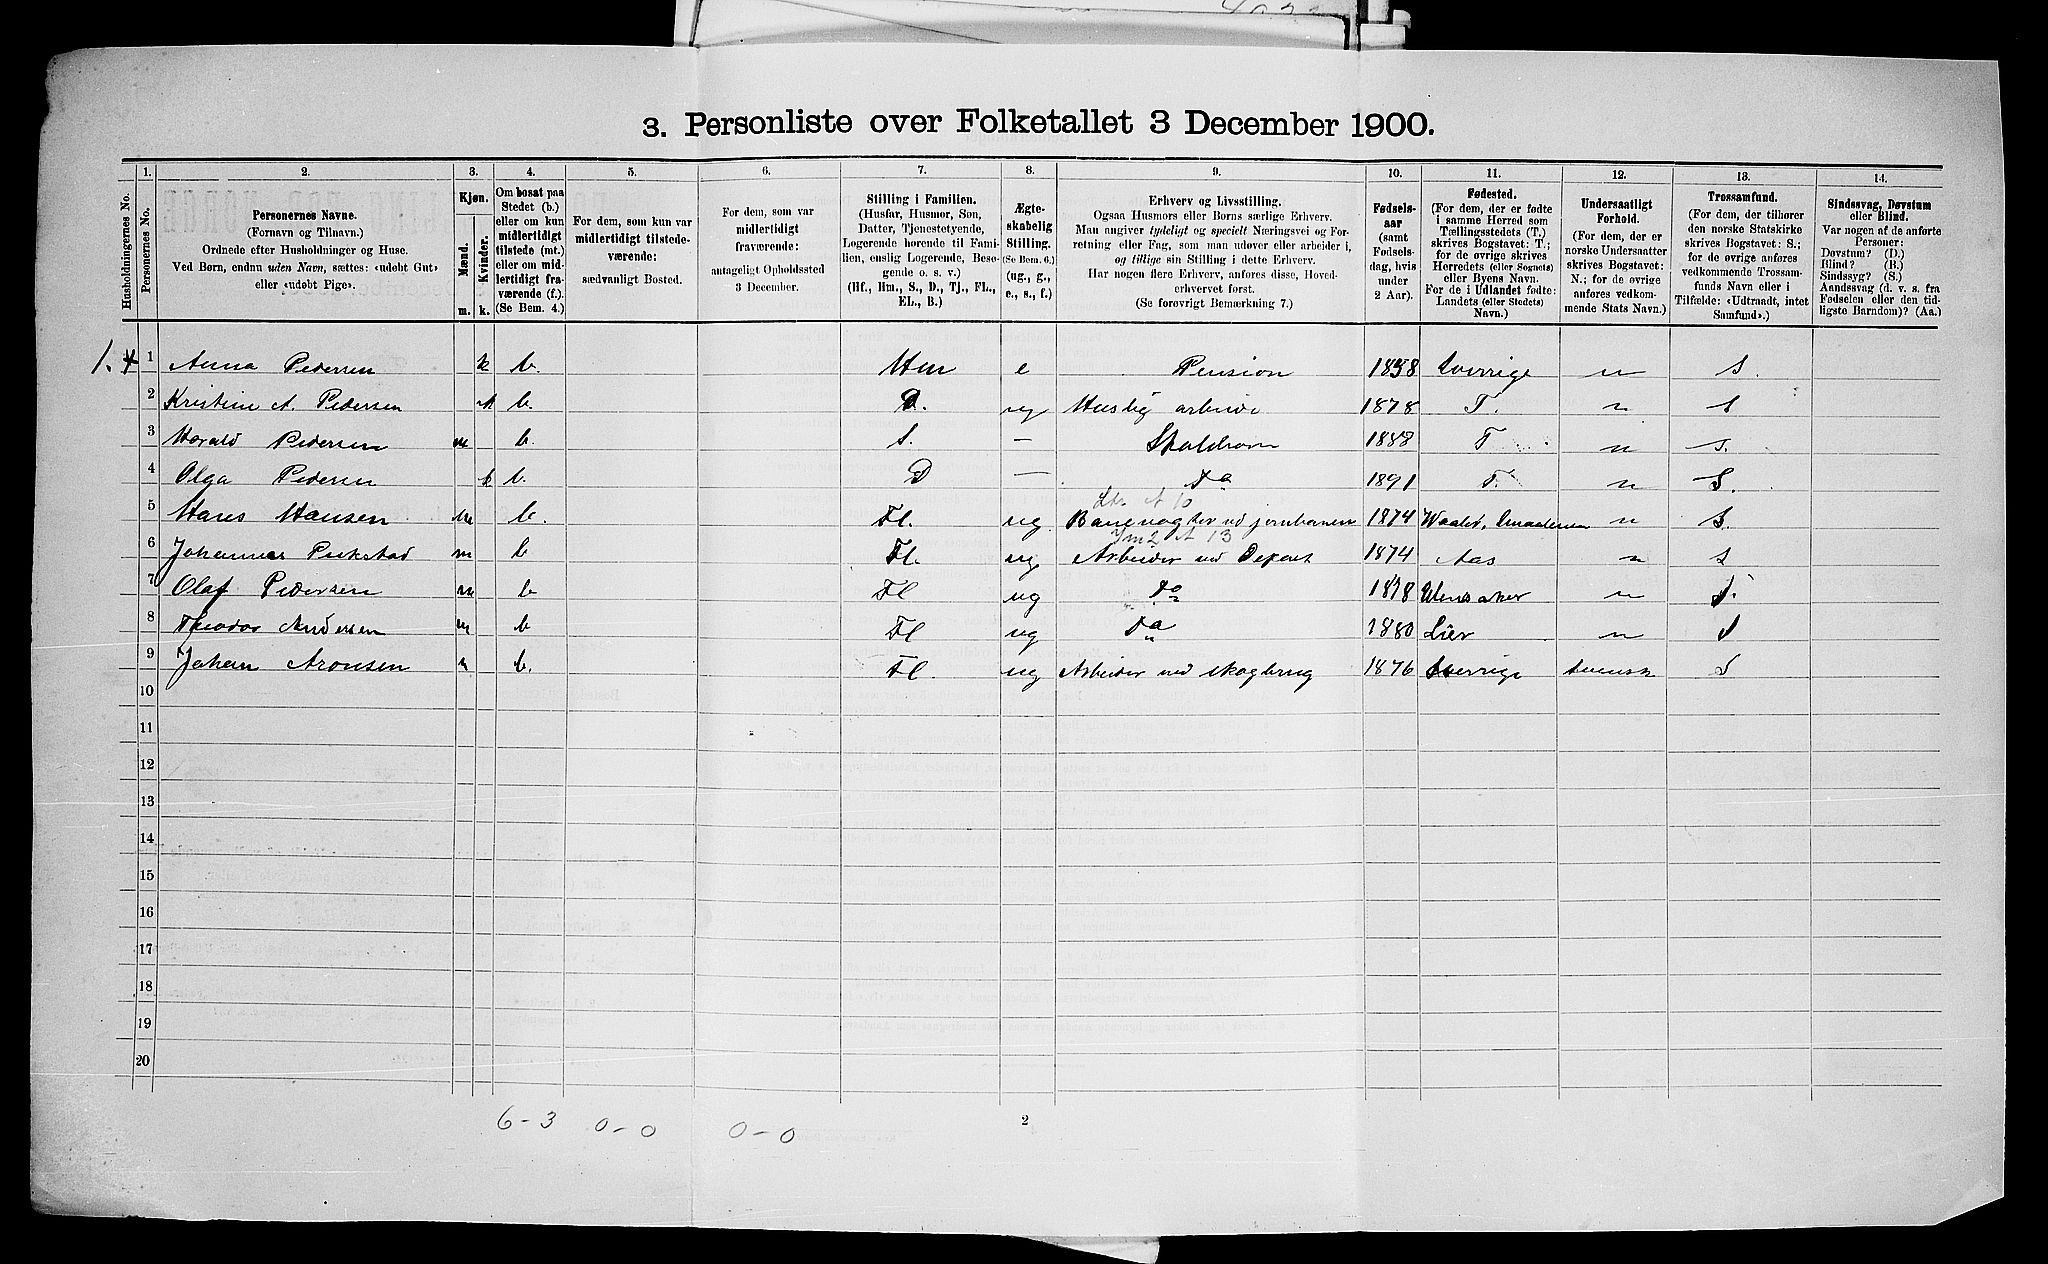 3. Personliste over Folketallet 3 December 1900.
Husholdningernes No.
1.
Personernes No.
2.
Personernes Navne.
(Fornavn og Tilnavn.)
Ordnede efter Husholdninger og Huse.
Ved Børn, endnu uden Navn, sættes: «udøbt Gut»
eller «udøbt Pige».
3.
Kjøn.
Mænd. Kvinder.
m. k.
4.
Om bosat paa
Stedet (b.)
eller om kun
midlertidigt
tilstede (mt.)
eller om mid-
lertidigt fra-
værende (f.).
(Se Bem. 4.)
5.
For dem, som kun var
midlertidigt tilstede-
værende:
sædvanligt Bosted.
6.
For dem, som var
midlertidigt
fraværende:
antageligt Opholdssted
3 December.
7.
Stilling i Familien.
(Husfar, Husmor, Søn,
Datter, Tjenestetyende,
Logerende hørende til Fami-
lien, enslig Logerende, Besø-
gende o. s. v.)
(Hf., Hm., S., D., Tj., FL.,
EL., B.)
8.
Ægte-
skabelig
Stilling.
(Se Bem. 6.)
(ug., g.,
e., s., f.)
9.
Erhverv og Livsstilling.
Ogsaa Husmors eller Børns særlige Erhverv.
Man angiver tydeligt og specielt Næringsvei og For-
retning eller Fag, som man udøver eller arbeider i,
og tillige sin Stilling i dette Erhverv.
Har nogen flere Erhverv, anføres disse, Hoved-
erhvervet først.
(Se forøvrigt Bemærkning 7.)
10.
Fødsels-
aar
(samt
Fødsels-
dag, hvis
under
2 Aar).
11.
Fødested.
(For dem, der er fødte
i samme Herred som
Tællingsstedets (T.)
skrives Bogstavet: T.;
for de øvrige skrives
Herredets (eller Sognets)
eller Byens Navn.
For de i Udlandet fødte:
Landets (eller Stedets)
Navn.)
12.
Undersaatligt
Forhold.
(For dem, der er
norske Undersaatter
skrives Bogstavet:
N.; for de øvrige
anføres vedkom-
mende Stats Navn.)
13.
Trossamfund.
(For dem, der tilhører
den norske Statskirke
skrives Bogstavet: S.;
for de øvrige anføres
vedkommende Trossam-
funds Navn eller i
Tilfælde: «Udtraadt, intet
Samfund».)
14.
Sindssvag, Døvstum
eller Blind.
Var nogen af de anførte
Personer:
Døvstum? (D.)
Blind? (B.)
Sindssyg? (S.)
Aandssvag (d. v. s. fra
Fødselen eller den tid-
ligste Barndom)? (Aa.)
1. 1 Anna Pedersen k b. Hm e Pension 1858 Sverrige n S.
2 Kristine A. Pedersen k b. D. ug Huslig arbeide 1878 T. n S
3 Harald Pedersen m b. S. — Skolebarn 1888 T n S.
4 Olga Pedersen k b. D — Do 1891 T. n S.
A 10
5 Hans Hansen m b. FL. ug Banevogter ved jernbanen 1874 Waaler, Smaalenene n S.
A 13
6 Johannes m b FL. ug Arbeider ved Depoet 1874 Aas n S
7 Olaf Pedersen m b FL ug Do 1878 Ullensaker n S.
8 Theodor Andersen m b FL ug Do 1880 Lier n S
9 Johan Aronsen m b. FL. ug Arbeider ved skogbrug 1876 Sverrige Svensk S
10
11
12
13
14
15
16
17
18
19
20
6-3 0-0 0-0
2